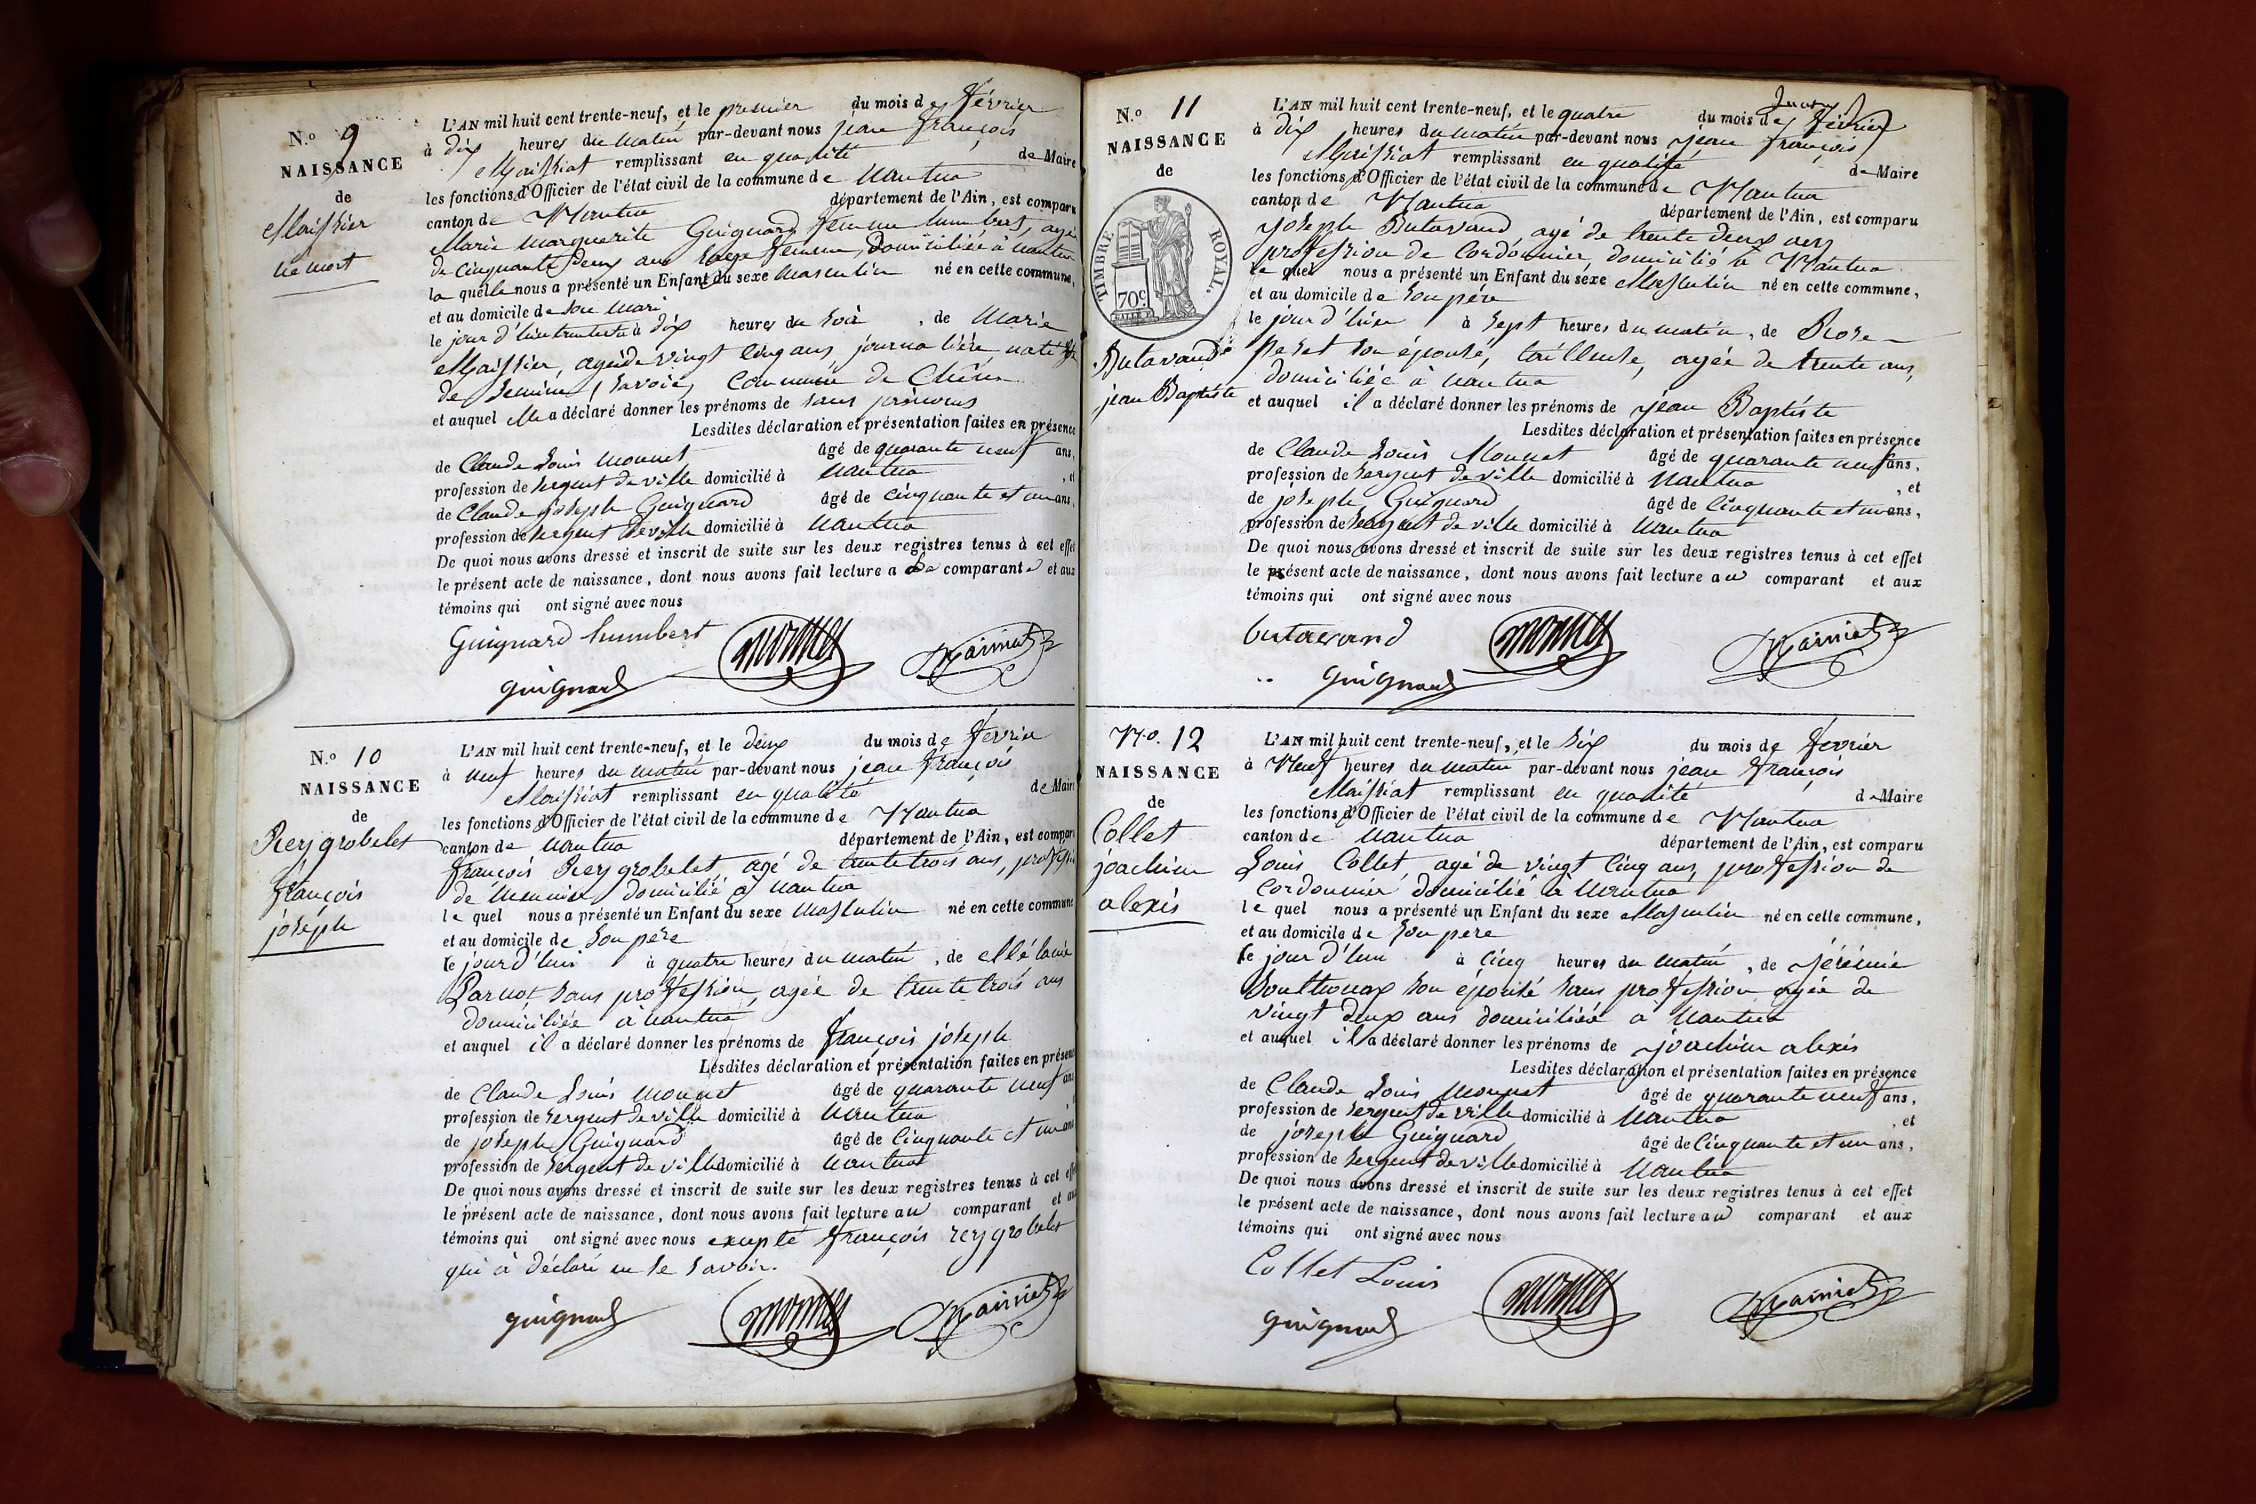 N.º 9
NAISSANCE
de
Maissier
né mort
L'AN mil huit cent trente-neuf, et le premier du mois de février
à dix heures du matin par-devant nous jean françois
Maissiat remplissant en qualité de Maire
les fonctions d'Officier de l'état civil de la commune de Nantua
canton de Nantua département de l'Ain, est comparu
Marie Marguerite Guignard femme humbert, agée
de cinquante deux ans sage femme, domiciliée à nantua
la quelle nous a présenté un Enfant du sexe masculin né en cette commune,
et au domicile de son mari
le jour d'hier trente un à dix heures du soir, de Marie
Maissier, agée de vingt cinq ans, journalière, native
de (Savoie) commune de
et auquel elle a déclaré donner les prénoms de sans prénoms
Lesdites déclaration et présentation faites en présence
de Claude Louis Monnet âgé de quarante neuf ans,
profession de sergent de ville domicilié à nantua, et
de Claude joseph Guignard âgé de cinquante et un ans,
profession de sergent de ville domicilié à nantua
De quoi nous avons dressé et inscrit de suite sur les deux registres tenus à cet effet
le présent acte de naissance, dont nous avons fait lecture a la comparante et aux
témoins qui ont signé avec nous
Guignard humbert monnet Maissiat
guignard
N.º 10
NAISSANCE
de
Reygrobelet
françois
joseph
L'AN mil huit cent trente-neuf, et le deux du mois de février
à neuf heures du matin par-devant nous jean françois
Maissiat remplissant en qualité de Maire
les fonctions d'Officier de l'état civil de la commune de Nantua
canton de nantua département de l'Ain, est comparu
françois Reygrobelet, agé de trente trois ans, profession
de meunier domicilié à nantua
le quel nous a présenté un Enfant du sexe masculin né en cette commune
et au domicile de son père
le jour d'hui à quatre heures du matin, de Mélanie
Parnot sans profession, agée de trente trois ans
domiciliée à nantua
et auquel il a déclaré donner les prénoms de françois joseph
Lesdites déclaration et présentation faites en présence
de Claude Louis monnet âgé de quarante neuf ans
profession de sergent de ville domicilié à nantua
de joseph Guignard âgé de cinquante et un ans
profession de sergent de ville domicilié à nantua
De quoi nous avons dressé et inscrit de suite sur les deux registres tenus à cet effet
le présent acte de naissance, dont nous avons fait lecture au comparant et aux
témoins qui ont signé avec nous excepté françois reygrobelet
qui à déclaré ne le savoir.
guignard monnet Maissiat
N.º 11
NAISSANCE
de
TIMBRE ROYAL.
70c.
Butavand
jean Baptiste
L'AN mil huit cent trente-neuf, et le quatre du mois de février
à dix heures du matin par-devant nous jean françois
Maissiat remplissant en qualité de Maire
les fonctions d'Officier de l'état civil de la commune de Nantua
canton de Nantua département de l'Ain, est comparu
joseph Butavand agé de trente deux ans
profession de cordonnier, domicilié à Nantua
le quel nous a présenté un Enfant du sexe Masculin né en cette commune,
et au domicile de son père
le jour d'hier à sept heures du matin, de Rose
son épouse, tailleuse, agée de trente ans,
domiciliée à nantua
et auquel il a déclaré donner les prénoms de jean Baptiste
Lesdites déclaration et présentation faites en présence
de Claude Louis Monnet âgé de quarante neuf ans,
profession de sergent de ville domicilié à Nantua, et
de joseph Guignard âgé de cinquante et un ans,
profession de sergent de ville domicilié à nantua
De quoi nous avons dressé et inscrit de suite sur les deux registres tenus à cet effet
le présent acte de naissance, dont nous avons fait lecture au comparant et aux
témoins qui ont signé avec nous
butavand monnet Maissiat
guignard
N.o. 12
NAISSANCE
de
Collet
joachim
alexis
L'AN mil huit cent trente-neuf, et le six du mois de février
à Neuf heures du matin par-devant nous jean françois
Maissiat remplissant en qualité de Maire
les fonctions d'Officier de l'état civil de la commune de Nantua
canton de nantua département de l'Ain, est comparu
Louis Collet, agé de vingt cinq ans, profession de
cordonnier domicilié à nantua
le quel nous a présenté un Enfant du sexe Masculin né en cette commune,
et au domicile de son père
le jour d'hui à cinq heures du matin, de jérémie
Soulthonax son épouse sans profession agée de
vingt deux ans domiciliée à nantua
et auquel il a déclaré donner les prénoms de joachim alexis
Lesdites déclaration et présentation faites en présence
de Claude Louis Monnet âgé de quarante neuf ans,
profession de sergent de ville domicilié à nantua, et
de joseph Guignard âgé de cinquante et un ans,
profession de sergent de ville domicilié à nantua
De quoi nous avons dressé et inscrit de suite sur les deux registres tenus à cet effet
le présent acte de naissance, dont nous avons fait lecture au comparant et aux
témoins qui ont signé avec nous
Collet Louis monnet Maissiat
guignard